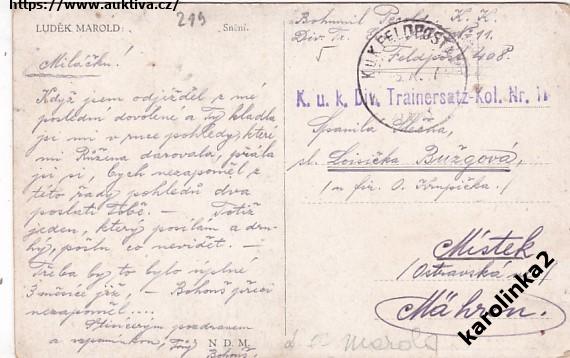 https://www.auktiva.cz/
219
LUDĚK MAROLD:
Snění.
Miláčku!
Když jsem odjížděl z mé
poslední dovolené a Ty kladla
jsi mi v ruce pohledy, které
mi Růžena darovala, přála
jsi si, bych nezapoměl z
této řady pohledů dva
poslati Tobě. — Totiž
jeden, který posílám a dru-
hý, pošlu co nevidět. —
Třeba by to bylo úplné
3 měsíce již, — Bohouš přeci
nezapoměl....
pozdravem
a vzpomínkou, Tvůj
Bohouš.
N. D. M.
Bohumil K. K.
Div. Tr. 11.
Feldpost 408.
K.u.K. FELDPOST
K. u. k. Div. Trainersatz-Kol. Nr. 11
Spanilá Slečna,
sl. Loisička Bužgová,
/u fir. O. Krupička./
Místek
/Ostravská ul./
Mähren.
Marold
karolinka2